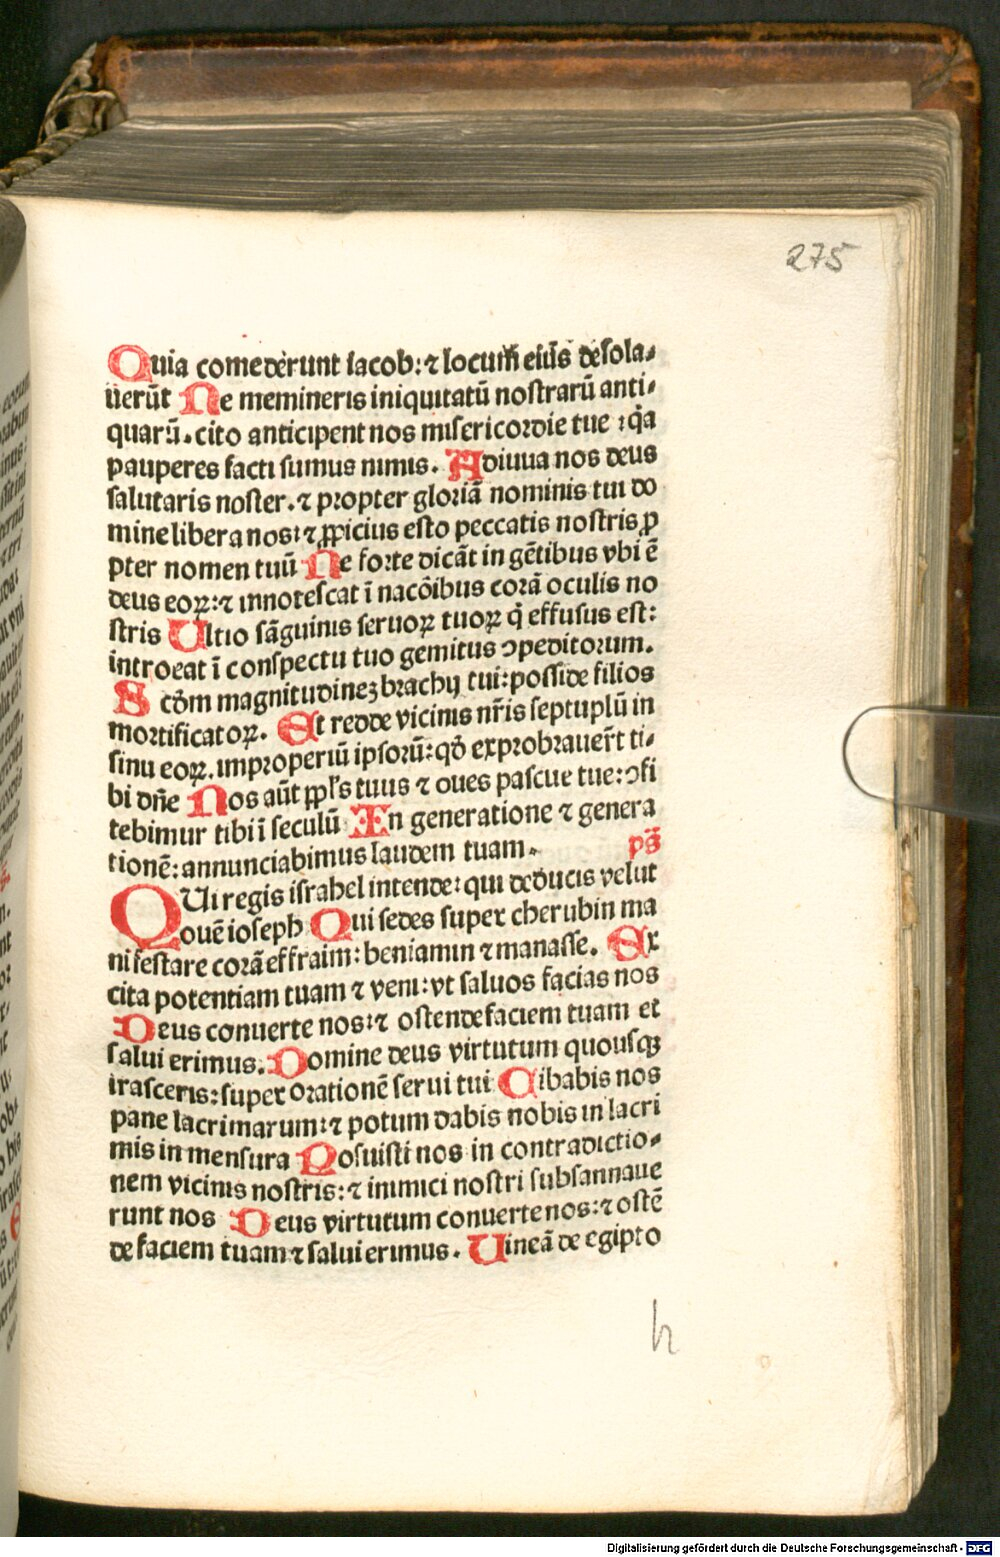 275
Quia comederunt iacob: ⁊ locum̄ eiuſ̄ deſola⸗
uerūt Ne memineris iniquitatū noſtrarū anti⸗
quarū. cito anticipent nos miſericordie tue : q̄a
pauperes facti ſumus nimis. Adiuua nos deus
ſalutaris noſter. ⁊ propter gloriā nominis tui do
mine libera nos: ⁊ ꝓpicius eſto peccatis noſtris ꝓ
pter nomen tuū Ne forte dicāt in gētibus vbi ē
deus eoꝝ: ⁊ innoteſcat ī nacōibus corā oculis no
ſtris Ultio ſāguinis ſeruoꝝ tuoꝝ q̄ effuſus eſt:
introeat ī conſpectu tuo gemitus ꝯpeditorum.
S cd̄m magnitudineʒ brachij tui: poſſide filios
mortificatoꝝ. Et redde vicinis nr̄is ſeptuplū in
ſinu eoꝝ. improperiū ipſorū: qd̄ exprobrauer̄t ti⸗
bi dn̄e Nos aūt ppl̄s tuus ⁊ oues paſcue tue: ꝯfi
tebimur tibi ī ſeculū In generatione ⁊ genera
tionē: annunciabimus laudem tuam. pſ̄
QUi regis iſrahel intende: qui deducis velut
ouē ioſeph Qui ſedes ſuper cherubin ma
nifeſtare corā effraim: beniamin ⁊ manaſſe. Ex
cita potentiam tuam ⁊ veni: vt ſaluos facias nos
Deus conuerte nos: ⁊ oſtende faciem tuam et
ſalui erimus. Domine deus virtutum quouſqꝫ
iraſceris: ſuper orationē ſerui tui Cibabis nos
pane lacrimarum: ⁊ potum dabis nobis in lacri
mis in menſura Poſuiſti nos in contradictio⸗
nem vicinis noſtris: ⁊ inimici noſtri ſubſannaue
runt nos Deus virtutum conuerte nos: ⁊ oſtē
de faciem tuam ⁊ ſalui erimus. Uineā de egipto
h
Digitalisierung gefördert durch die Deutsche Forschungsgemeinschaft - DFG